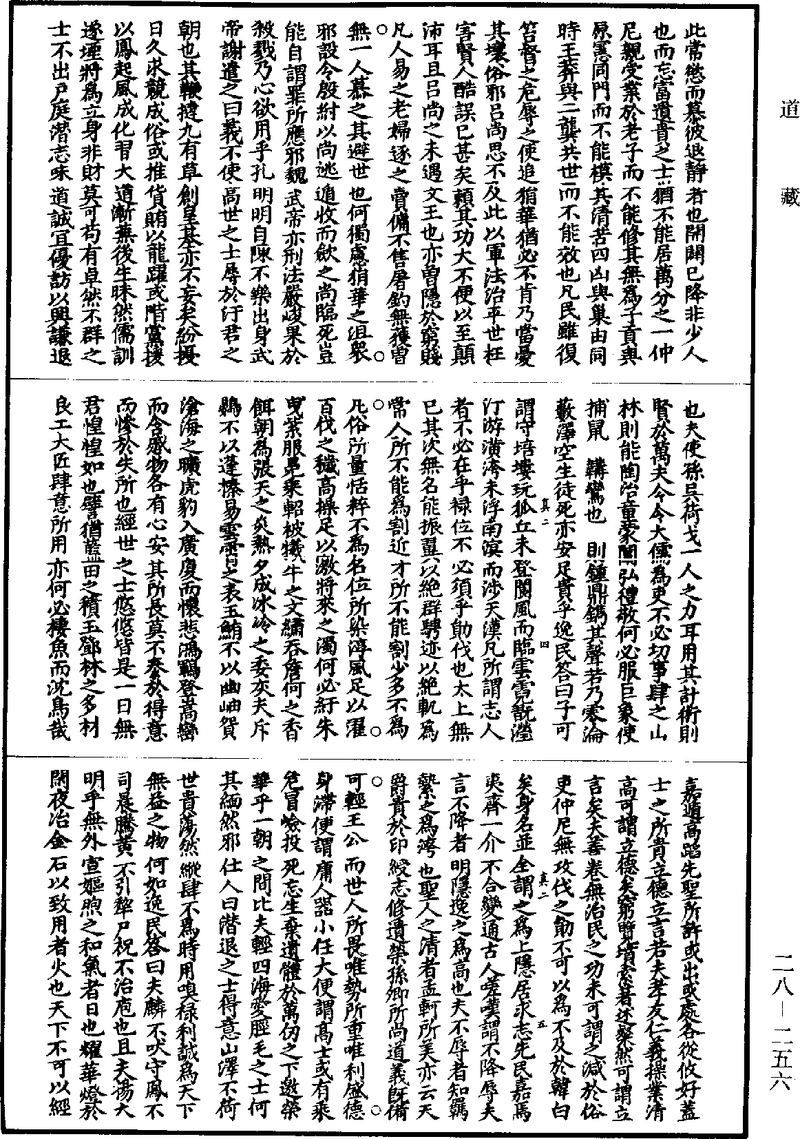 道藏
此常慙而慕彼退靜者也開闢已降非少人
也而忘富遺貴之士猶不能居萬分之一仲
尼親受業於老子而不能修其無為子貢與
原憲同門而不能模其清苦四凶與巢由同
時王莽與二龔共世而不能效也凡民雖復
笞督之危辱之使追狷華猶必不肯乃當憂
其壞俗邪呂尚思不及此以軍法治平世枉
害賢人酷誤已甚矣賴其功大不便以至顛
沛耳且呂尚之未遇文王也亦曾隱於窮賤
凡人易之老婦逐之賣傭不售屠釣無獲曾
無一人慕之其避世也何獨慮狷華之沮衆
邪設令殷紂以尚逃遁收而歛之尚臨死豈
能自謂罪所應邪魏武帝亦刑法嚴峻果於
殺戮乃心欲用乎孔明明自陳不樂出身武
帝謝遣之曰義不使高世之士辱於汙君之
朝也其鞭撻九有草創皇基亦不妄矣紛擾
日久求競成俗或推貨賄以龍躍或階黨援
以鳳起風成化習大道漸蕪後生昧然儒訓
遂堙將為立身非財莫可苟有卓然不群之
士不出戶庭潛志味道誠宜優訪以興謙退
也夫使孫吳荷戈一人之力耳用其計術則
賢於萬夫今令大儒為吏不必切事肆之山
林則能陶冶童蒙闡弘禮敬何必服巨象使
捕鼠韝鸞也則鍾鼎鐫其聲若乃零淪
藪澤空生徒死亦安足貴乎逸民荅曰子可
謂守培塿玩狐丘未登閬風而臨雲霄翫瀅
汀游潢洿未浮南溟而涉天漢凡所謂志人
者不必在乎祿位不必須乎勛伐也太上無
已其次無名能振翼以絶群騁迹以絶軌為
常人所不能為割近才所不能割少多不為
凡俗所量恬粹不為名位所染淳風足以濯
百代之穢高操足以激將來之濁何必紆朱
曳紫服冕乘軺被犧牛之文繡吞詹何之香
餌朝為張天之炎熱夕成冰冷之委灰夫斥
鷃不以蓬榛易雲霄之表王鮪不以幽岫貿
滄海之曠虎豹入廣廈而懷悲鴻鶤登嵩巒
而含慼物各有心安其所長莫不泰於得意
而慘於失所也經世之士悠悠皆是一日無
君惶惶如也譬猶藍田之積玉鄧林之多材
良工大匠肆意所用亦何必棲魚而沈鳥哉
真二 四
嘉遁高蹈先聖所許或出或處各從攸好蓋
士之所貴立德立言若夫孝友仁義操業清
高可謂立德矣窮覽墳索著述粲然可謂立
言矣夫善卷無治民之功未可謂之減於俗
吏仲尼無攻伐之勛不可以為不及於韓白
矣身名並全謂之為上隱居求志先民嘉焉
夷齊一介不合變通古人嗟嘆謂不降辱夫
言不降者明隱逸之為高也夫不辱者知羈
縶之為洿也聖人之清者孟軻所美亦云天
爵貴於印綬志修遺榮孫卿所尚道義旣備
可輕王公而世人所畏唯勢所重唯利盛德
身滯便謂庸人器小任大便謂高士或有乘
危冒嶮投死忘生棄遺體於萬仞之下邀榮
華乎一朝之間比夫輕四海愛脛毛之士何
其緬然邪仕人曰潛退之士得意山澤不荷
世貴蕩然縱肆不為時用嗅祿利誠為天下
無益之物何如逸民荅曰夫麟不吠守鳳不
司晨騰黃不引犂尸祝不治庖也且夫揚大
明乎無外宣嫗煦之和氣者日也耀華燈於
闇夜冶金石以致用者火也天下不可以經
真二 五
二八—二五六